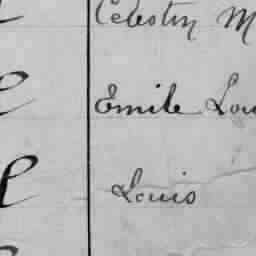 Celestin M
Emile Lou
Louis